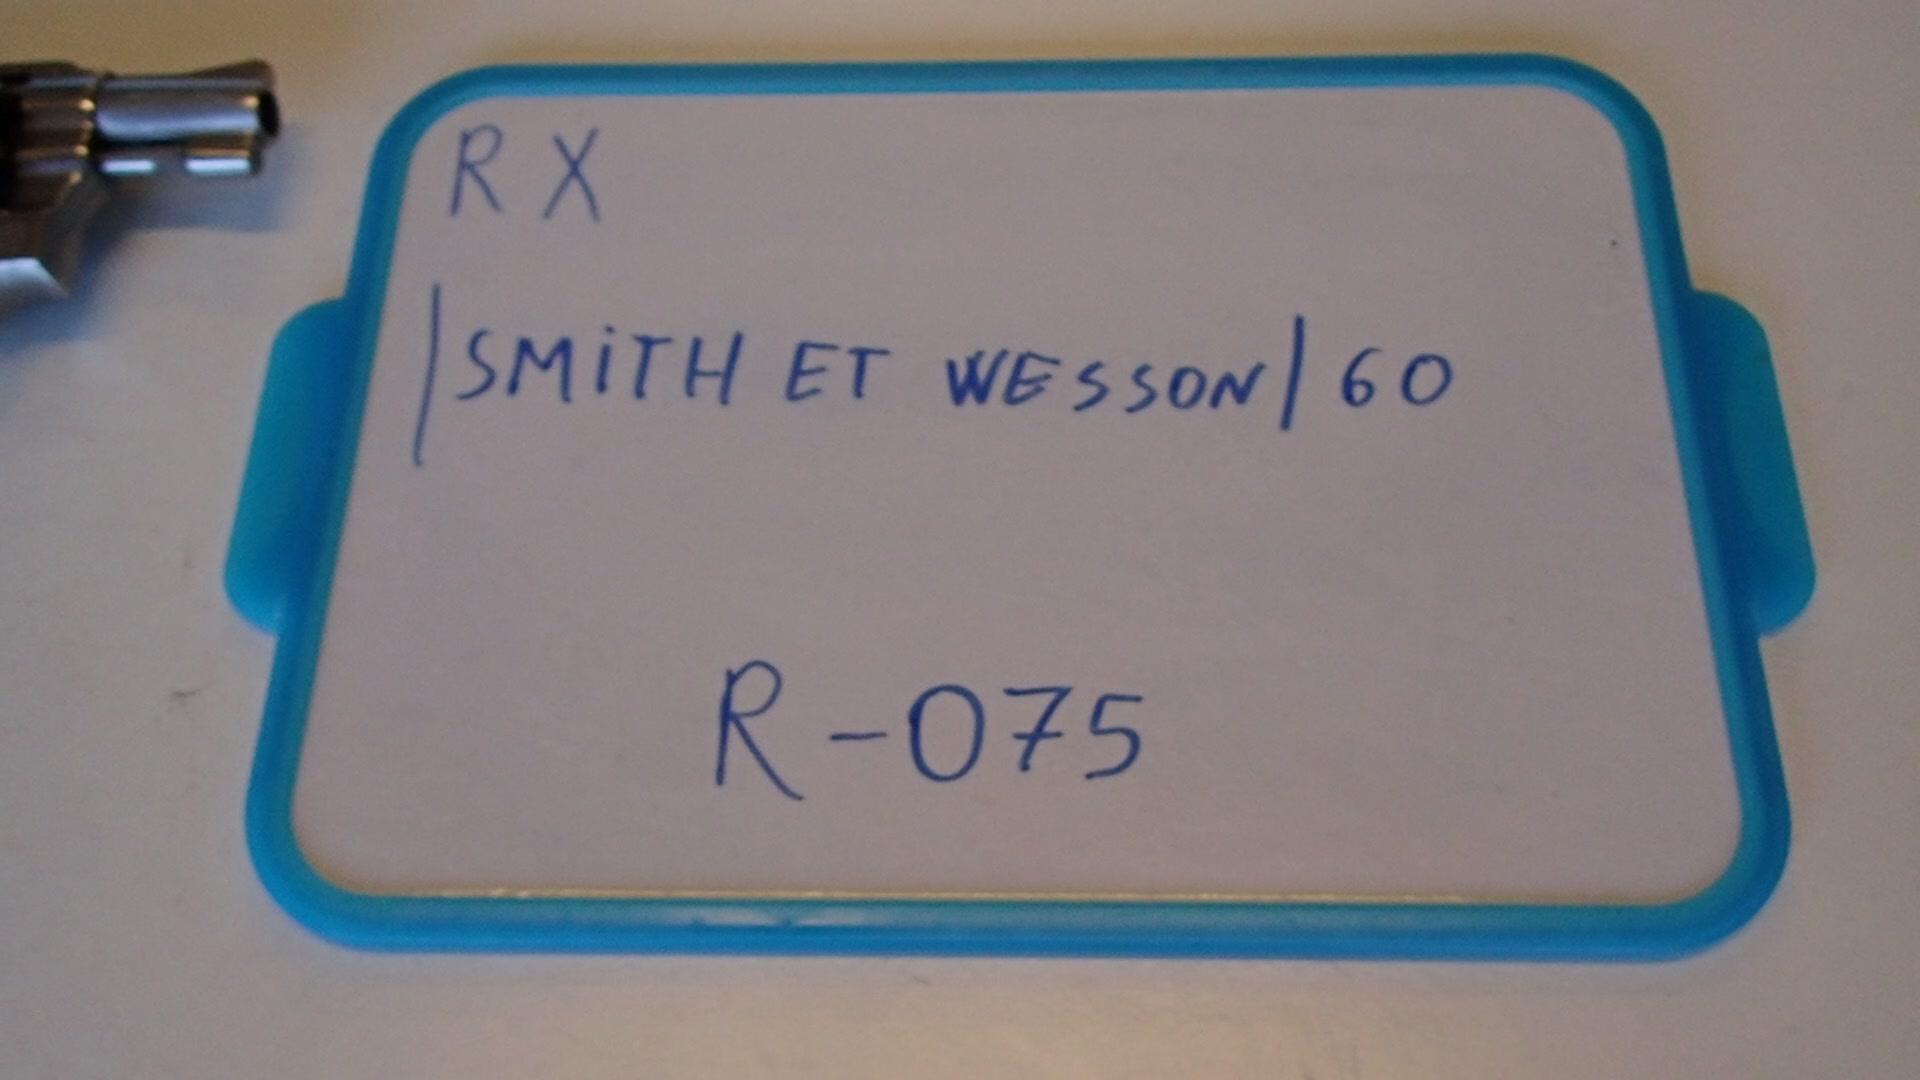 R X
/SMiTH ET WESSON/60
R-075